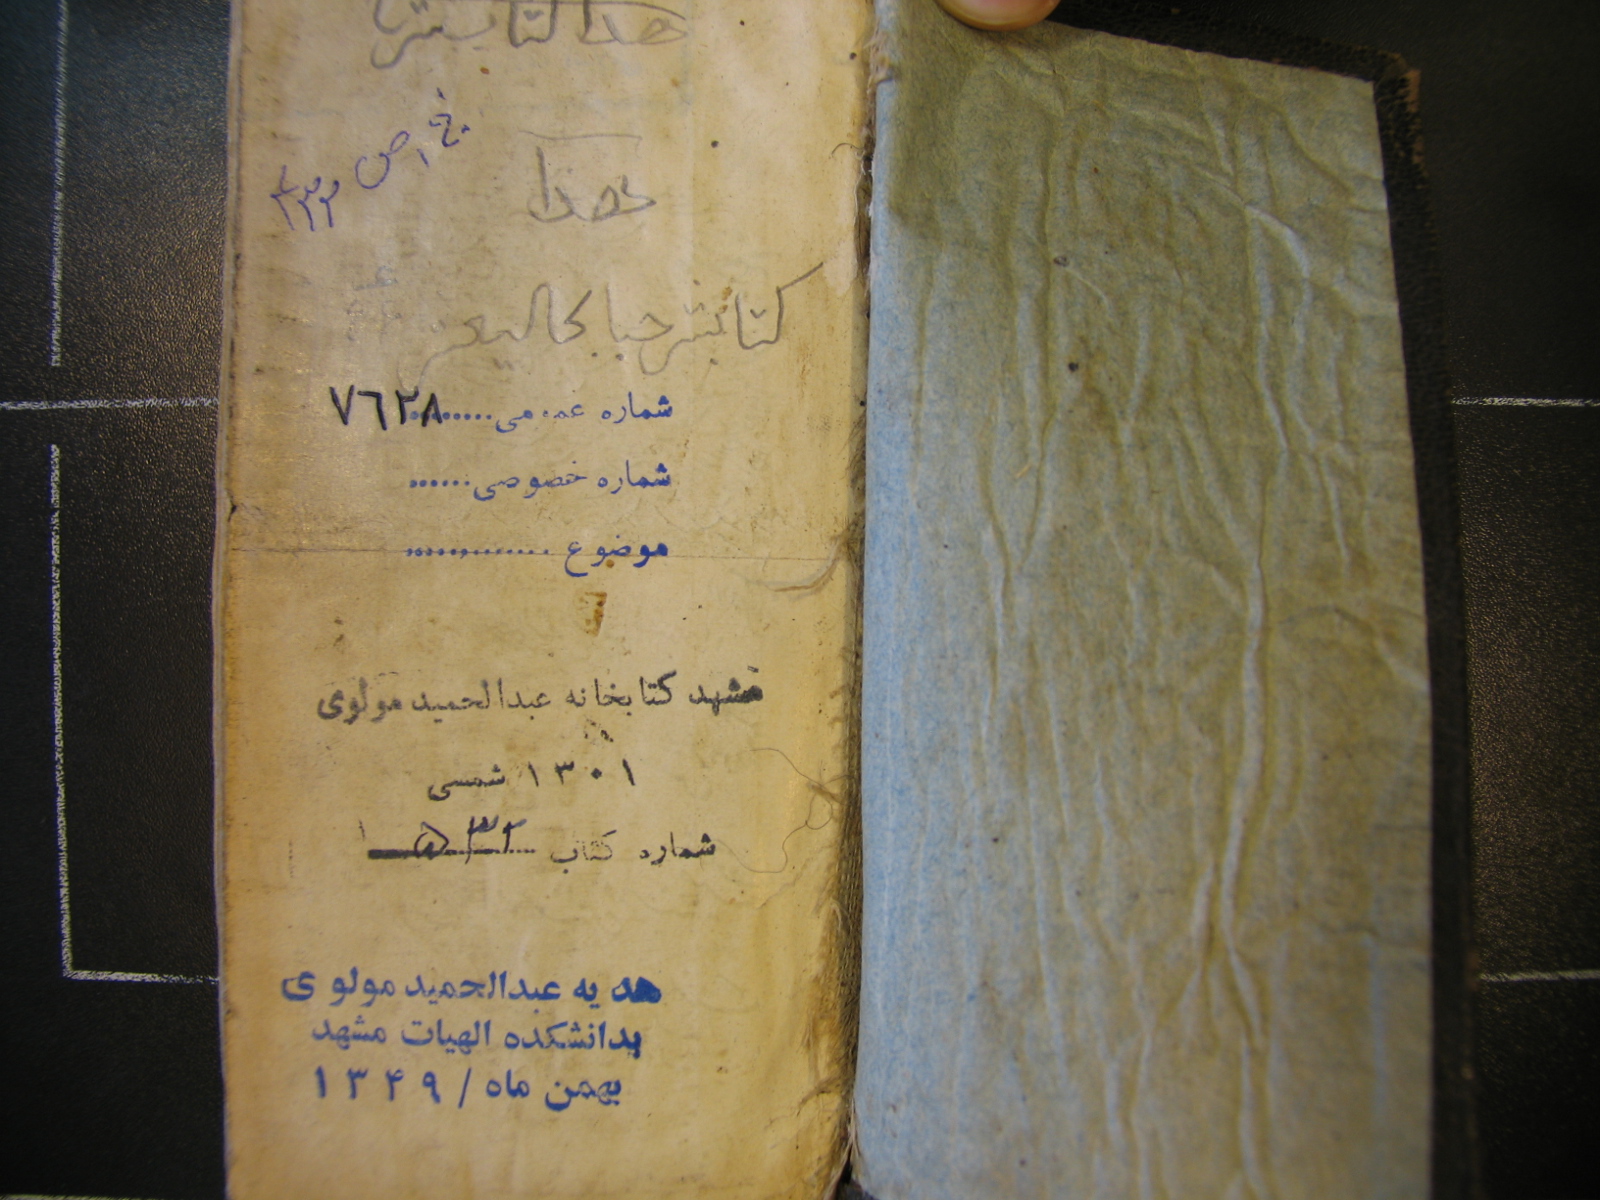 هذا کتاب
خ ۱ ص ۴۳۳
هذا
کتاب
شماره عمومی ۷٦۲۸
شماره خصوصی
موضوع
مشهد کتابخانه عبدالحمید مولوی
۱۳۰۱ شمسی
شماره کتاب ۵۳۲
هدیه عبدالحمید مولوی
بدانشکده الهیات مشهد
بهمن ماه / ۱۳۴۹